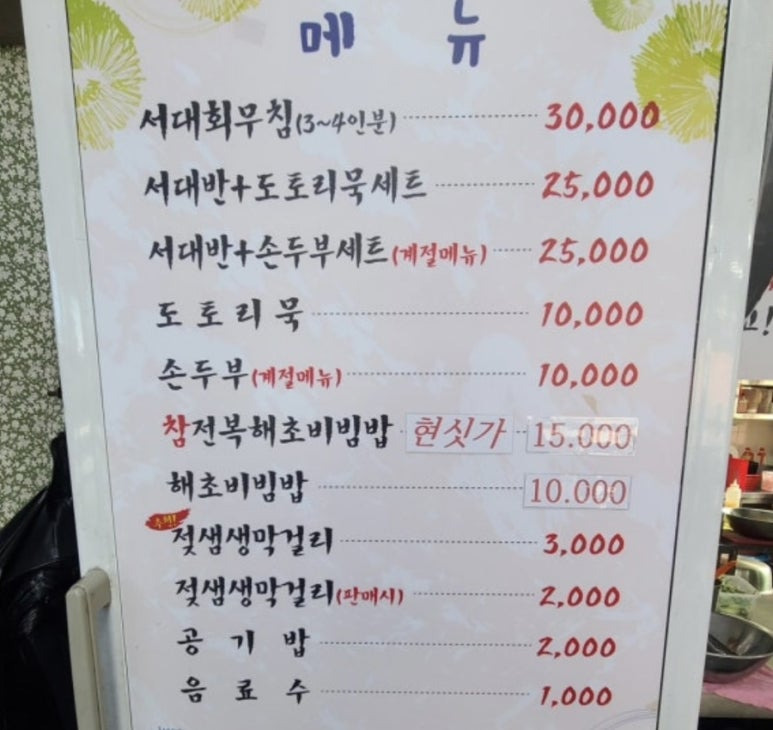 메 뉴
서대회무침(3~4인분) 30,000
서대반+도토리묵세트 25,000
서대반+손두부세트(계절메뉴) 25,000
도토리묵 10,000
손두부(계절메뉴) 10,000
참전복해초비빔밥 현싯가 15.000
해초비빔밥 10.000
추천!
젖샘생막걸리 3,000
젖샘생막걸리(판매시) 2,000
공기밥 2,000
음료수 1,000